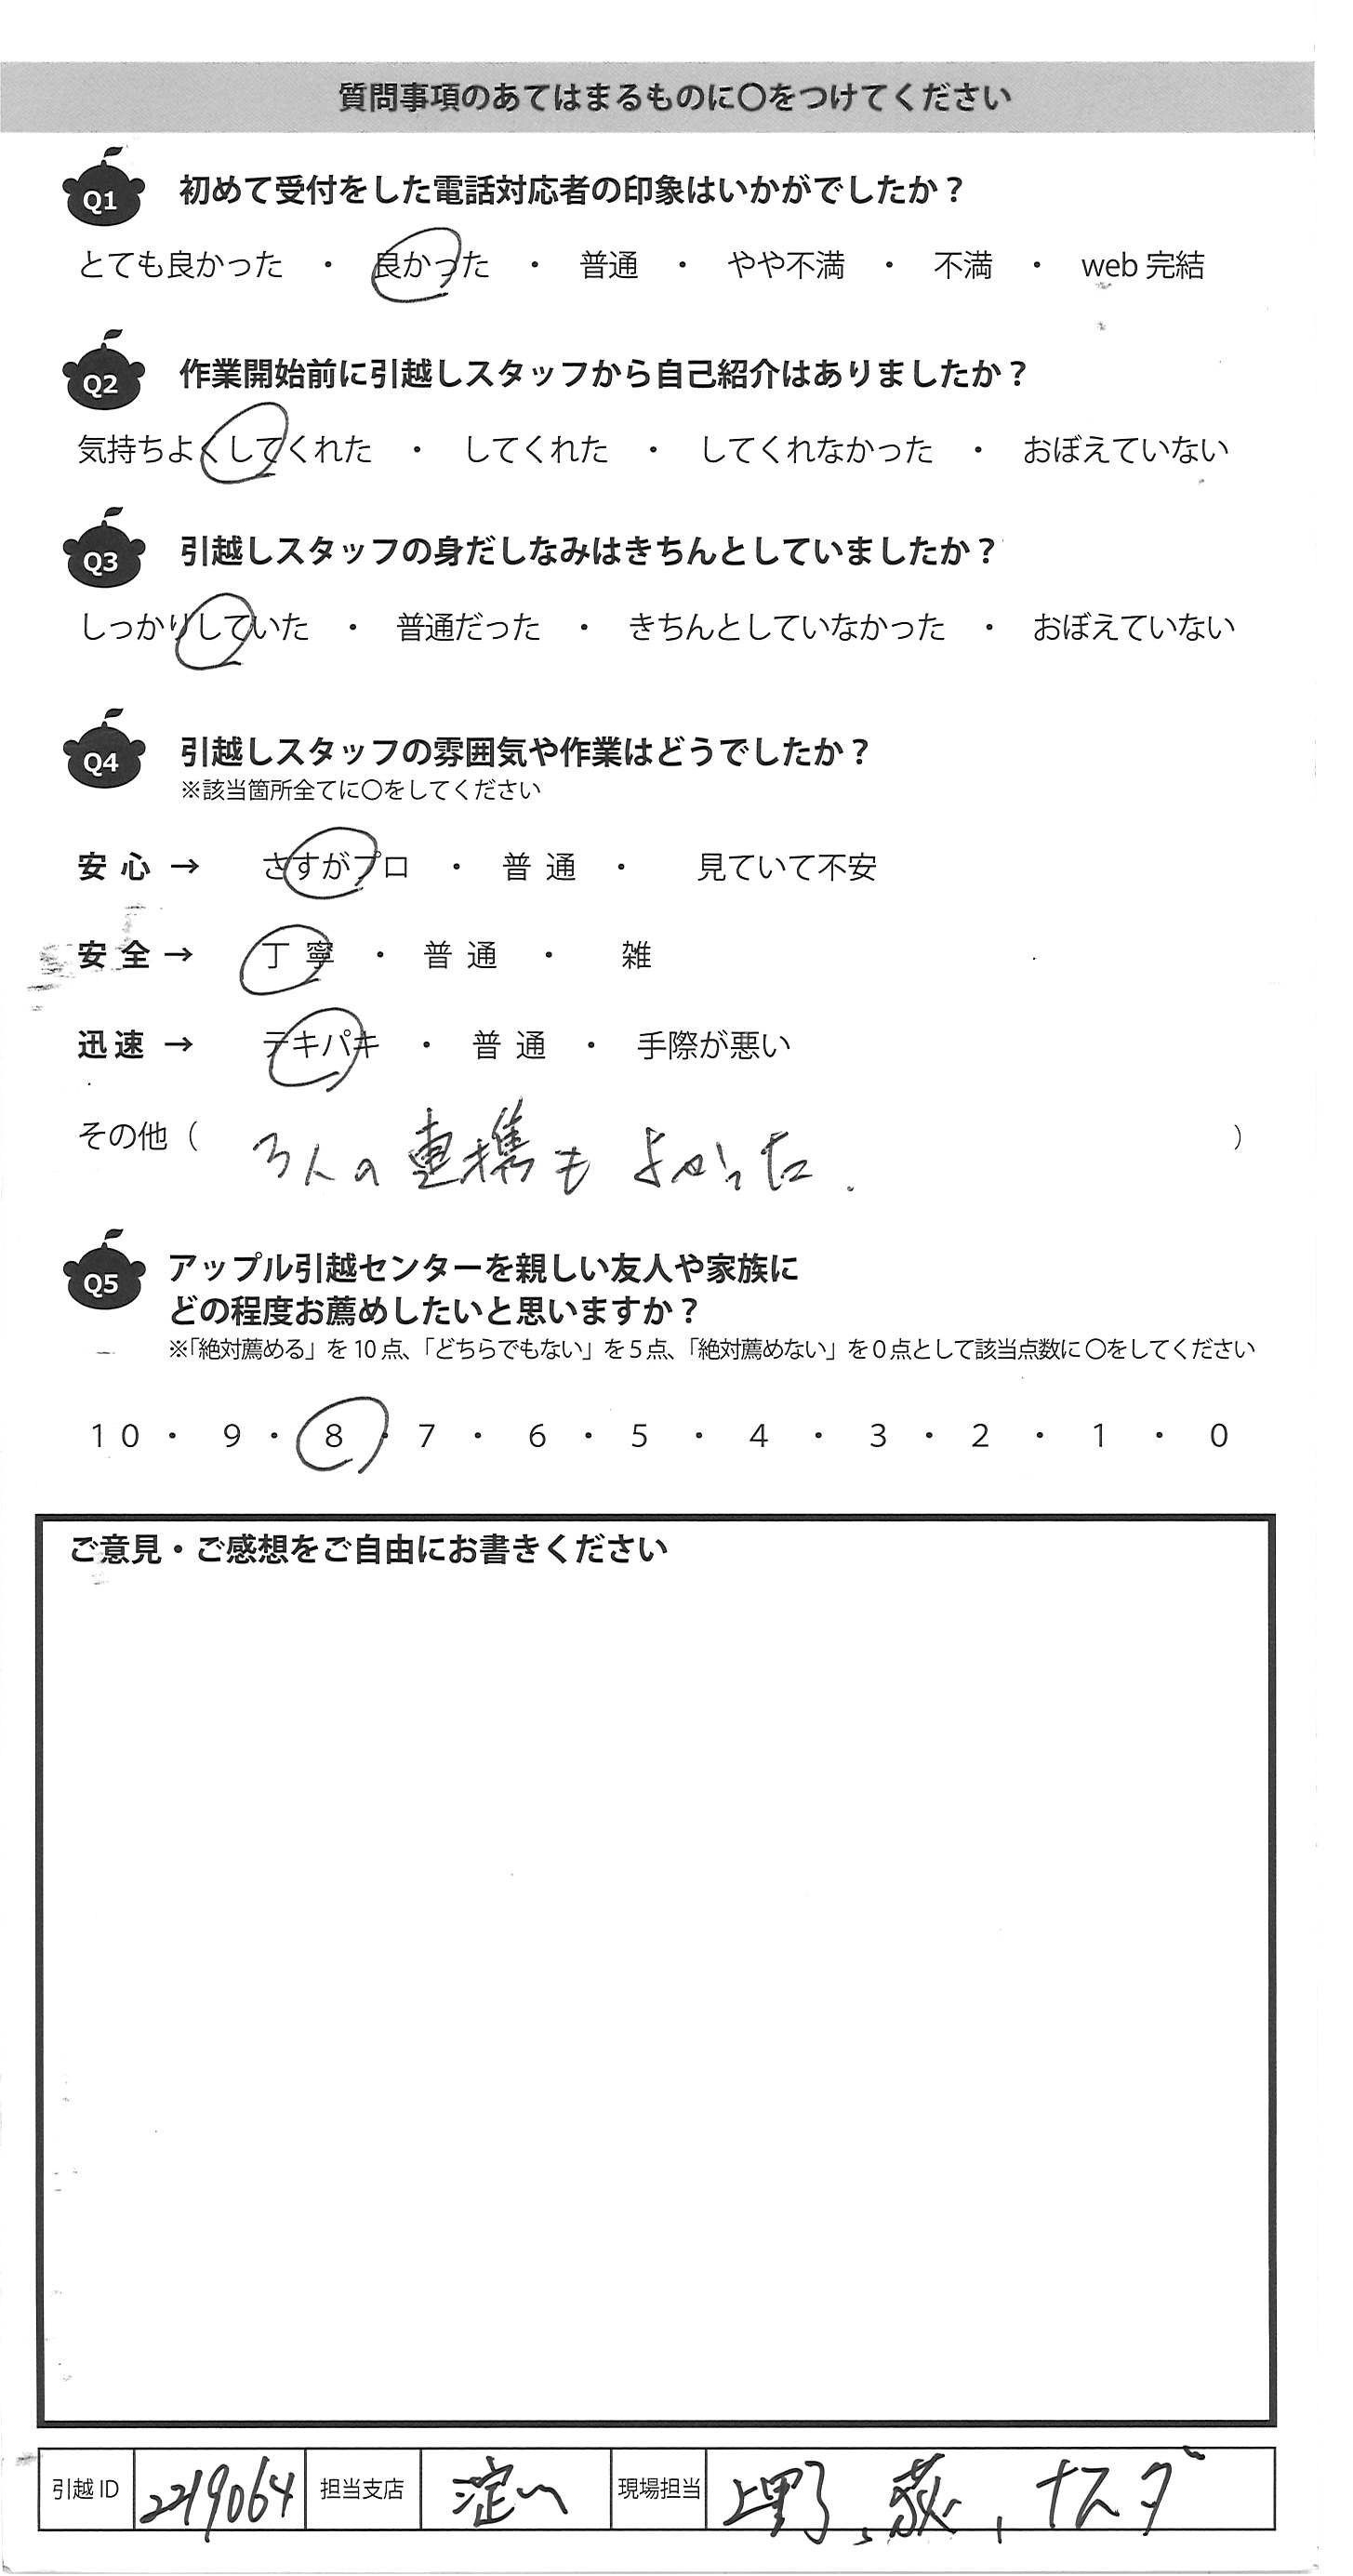 質問事項のあてはまるものに〇をつけてください
Q1 初めて受付をした電話対応者の印象はいかがでしたか？
とても良かった ・ 良かった ・ 普通 ・ やや不満 ・ 不満 ・ web 完結
Q2 作業開始前に引越しスタッフから自己紹介はありましたか？
気持ちよくしてくれた ・ してくれた ・ してくれなかった ・ おぼえていない
Q3 引越しスタッフの身だしなみはきちんとしていましたか？
しっかりしていた ・ 普通だった ・ きちんとしていなかった ・ おぼえていない
Q4 引越しスタッフの雰囲気や作業はどうでしたか？
※該当箇所全てに〇をしてください
安 心 → さすがプロ ・ 普 通 ・ 見ていて不安
安 全 → 丁 寧 ・ 普 通 ・ 雑
迅 速 → テキパキ ・ 普 通 ・ 手際が悪い
その他（ 3人の連携もよかった. ）
Q5 アップル引越センターを親しい友人や家族に
どの程度お薦めしたいと思いますか？
※「絶対薦める」を 10 点、「どちらでもない」を 5 点、「絶対薦めない」を 0 点として該当点数に 〇をしてください
10 ・ 9 ・ 8 ・ 7 ・ 6 ・ 5 ・ 4 ・ 3 ・ 2 ・ 1 ・ 0
ご意見・ご感想をご自由にお書きください
引越 ID 2219064 担当支店 淀 現場担当 上野、荻、ナスダ